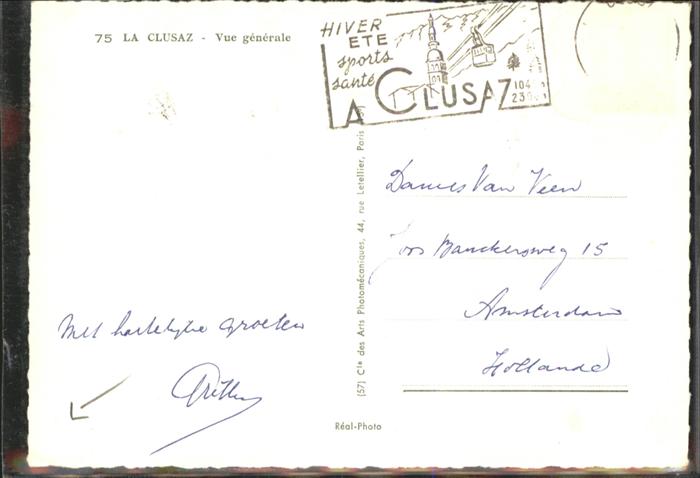 75 LA CLUSAZ - Vue générale
HIVER
ETE
sports
santé
LA CLUSAZ
Met hartelijke groeten
(57) Cie des Arts Photomécaniques, 44, rue Letellier, Paris
Dames Van Veen
Jos Banckersweg 15
Amsterdam
Hollande
Réal-Photo